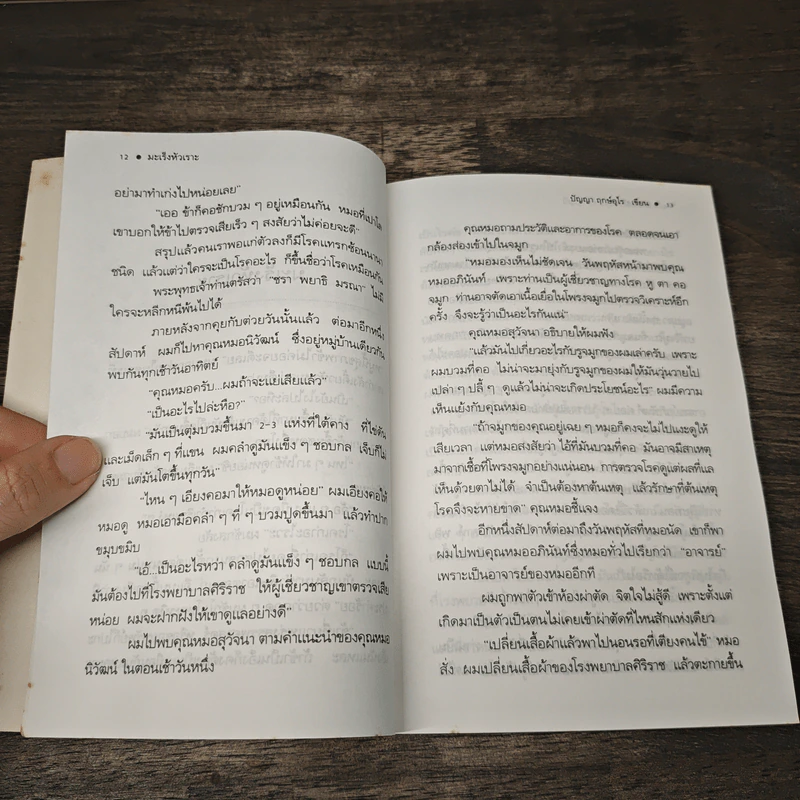 12 ● มะเร็งหัวเราะ
อย่ามาทำเก่งไปหน่อยเลย"
"เออ ข้าก็คอชักบวม ๆ อยู่เหมือนกัน หมอที่เปาโล
เขาบอกให้ข้าไปตรวจเสียเร็ว ๆ สงสัยว่าไม่ค่อยจะดี"
สรุปแล้วคนเราพอแก่ตัวลงก็มีโรคแทรกซ้อนนานา
ชนิด แล้วแต่ว่าใครจะเป็นโรคอะไร ก็ขึ้นชื่อว่าโรคเหมือนกัน
พระพุทธเจ้าท่านตรัสว่า "ชรา พยาธิ มรณา" ไม่มี
ใครจะหลีกหนีพ้นไปได้
ภายหลังจากคุยกับต่วยวันนั้นแล้ว ต่อมาอีกหนึ่ง
สัปดาห์ ผมก็ไปหาคุณหมอนิวัฒน์ ซึ่งอยู่หมู่บ้านเดียวกัน
พบกันทุกเช้าวันอาทิตย์
"คุณหมอครับ...ผมถ้าจะแย่เสียแล้ว"
"เป็นอะไรไปล่ะหือ?"
"มันเป็นตุ่มบวมขึ้นมา 2-3 แห่งที่ใต้คาง ที่ไข่ดัน
และเม็ดเล็ก ๆ ที่แขน ผมคลำดูมันแข็ง ๆ ชอบกล เจ็บก็ไม่
เจ็บ แต่มันโตขึ้นทุกวัน"
"ไหน ๆ เอียงคอมาให้หมอดูหน่อย" ผมเอียงคอให้
หมอดู หมอเอามือคลำ ๆ ที่ ๆ บวมปูดขึ้นมา แล้วทำปาก
ขมุบขมิบ
"เอ้...เป็นอะไรหว่า คลำดูมันแข็ง ๆ ชอบกล แบบนี้
มันต้องไปที่โรงพยาบาลศิริราช ให้ผู้เชี่ยวชาญเขาตรวจเสีย
หน่อย ผมจะฝากฝังให้เขาดูแลอย่างดี"
ผมไปพบคุณหมอสุวัจนา ตามคำแนะนำของคุณหมอ
นิวัฒน์ ในตอนเช้าวันหนึ่ง
ปัญญา ฤกษ์อุไร เขียน ● 13
คุณหมอถามประวัติและอาการของโรค ตลอดจนเอา
กล้องส่องเข้าไปในจมูก
"หมอมองเห็นไม่ชัดเจน วันพฤหัสหน้ามาพบคุณ
หมออภินันท์ เพราะท่านเป็นผู้เชี่ยวชาญทางโรค หู ตา คอ
จมูก ท่านอาจตัดเอาเนื้อเยื่อในโพรงจมูกไปตรวจวิเคราะห์อีก
ครั้ง จึงจะรู้ว่าเป็นอะไรกันแน่"
คุณหมอสุวัจนา อธิบายให้ผมฟัง
"แล้วมันไปเกี่ยวอะไรกับรูจมูกของผมเล่าครับ เพราะ
ผมบวมที่คอ ไม่น่าจะมายุ่งกับรูจมูกของผมให้มันวุ่นวายไป
เปล่า ๆ ปลี้ ๆ ดูแล้วไม่น่าจะเกิดประโยชน์อะไร" ผมมีความ
เห็นแย้งกับคุณหมอ
"ถ้าจมูกของคุณอยู่เฉย ๆ หมอก็คงจะไม่ไปแงะดูให้
เสียเวลา แต่หมอสงสัยว่า ไอ้ที่มันบวมที่คอ มันอาจมีสาเหตุ
มาจากเชื้อที่โพรงจมูกอย่างแน่นอน การตรวจโรคดูแต่ผลที่แล
เห็นด้วยตาไม่ได้ จำเป็นต้องหาต้นเหตุ แล้วรักษาที่ต้นเหตุ
โรคจึงจะหายขาด" คุณหมอชี้แจง
อีกหนึ่งสัปดาห์ต่อมาถึงวันพฤหัสที่หมอนัด เขาก็พา
ผมไปพบคุณหมออภินันท์ซึ่งหมอทั่วไปเรียกว่า "อาจารย์"
เพราะเป็นอาจารย์ของหมออีกที
ผมถูกพาตัวเข้าห้องผ่าตัด จิตใจไม่สู้ดี เพราะตั้งแต่
เกิดมาเป็นตัวเป็นตนไม่เคยเข้าผ่าตัดที่ไหนสักแห่งเดียว
"เปลี่ยนเสื้อผ้าแล้วพาไปนอนรอที่เตียงคนไข้" หมอ
สั่ง ผมเปลี่ยนเสื้อผ้าของโรงพยาบาลศิริราช แล้วตะกายขึ้น